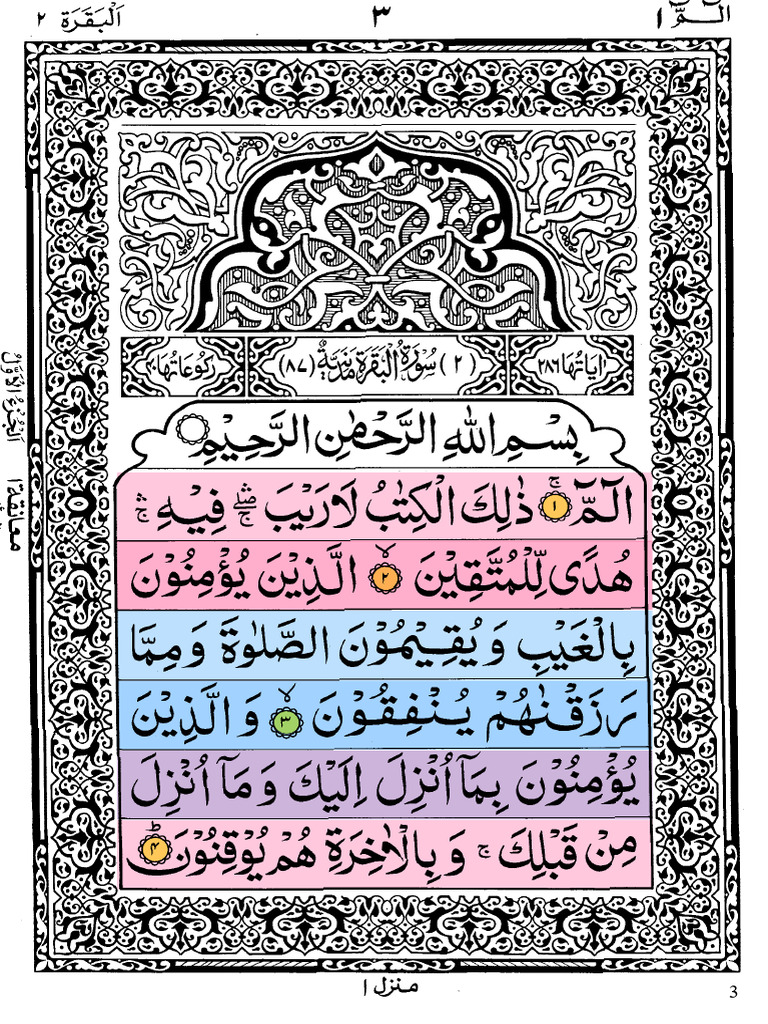 الٓـمّٓ ١
٣
اَلْبَقَرَة ٢
اٰيَاتُهَا ٢٨٦
(٢) سُوْرَةُ الْبَقَرَةِ مَدَنِيَّةٌ (٨٧)
رُكُوْعَاتُهَا ٤٠
بِسْمِ اللّٰهِ الرَّحْمٰنِ الرَّحِيْمِ
الٓمّٓ ۚ ١ ذٰلِكَ الْكِتٰبُ لَا رَيْبَ ۛۖ فِيْهِ ۛۚ
هُدًى لِّلْمُتَّقِيْنَ ۙ ٢ الَّذِيْنَ يُؤْمِنُوْنَ
بِالْغَيْبِ وَيُقِيْمُوْنَ الصَّلٰوةَ وَمِمَّا
رَزَقْنٰهُمْ يُنْفِقُوْنَ ۙ ٣ وَالَّذِيْنَ
يُؤْمِنُوْنَ بِمَآ اُنْزِلَ اِلَيْكَ وَمَآ اُنْزِلَ
مِنْ قَبْلِكَ ۚ وَبِالْاٰخِرَةِ هُمْ يُوْقِنُوْنَ ؕ ٤
اَلْجُزْءُ الْاَوَّلُ
معانقة ١
منزل ١
3